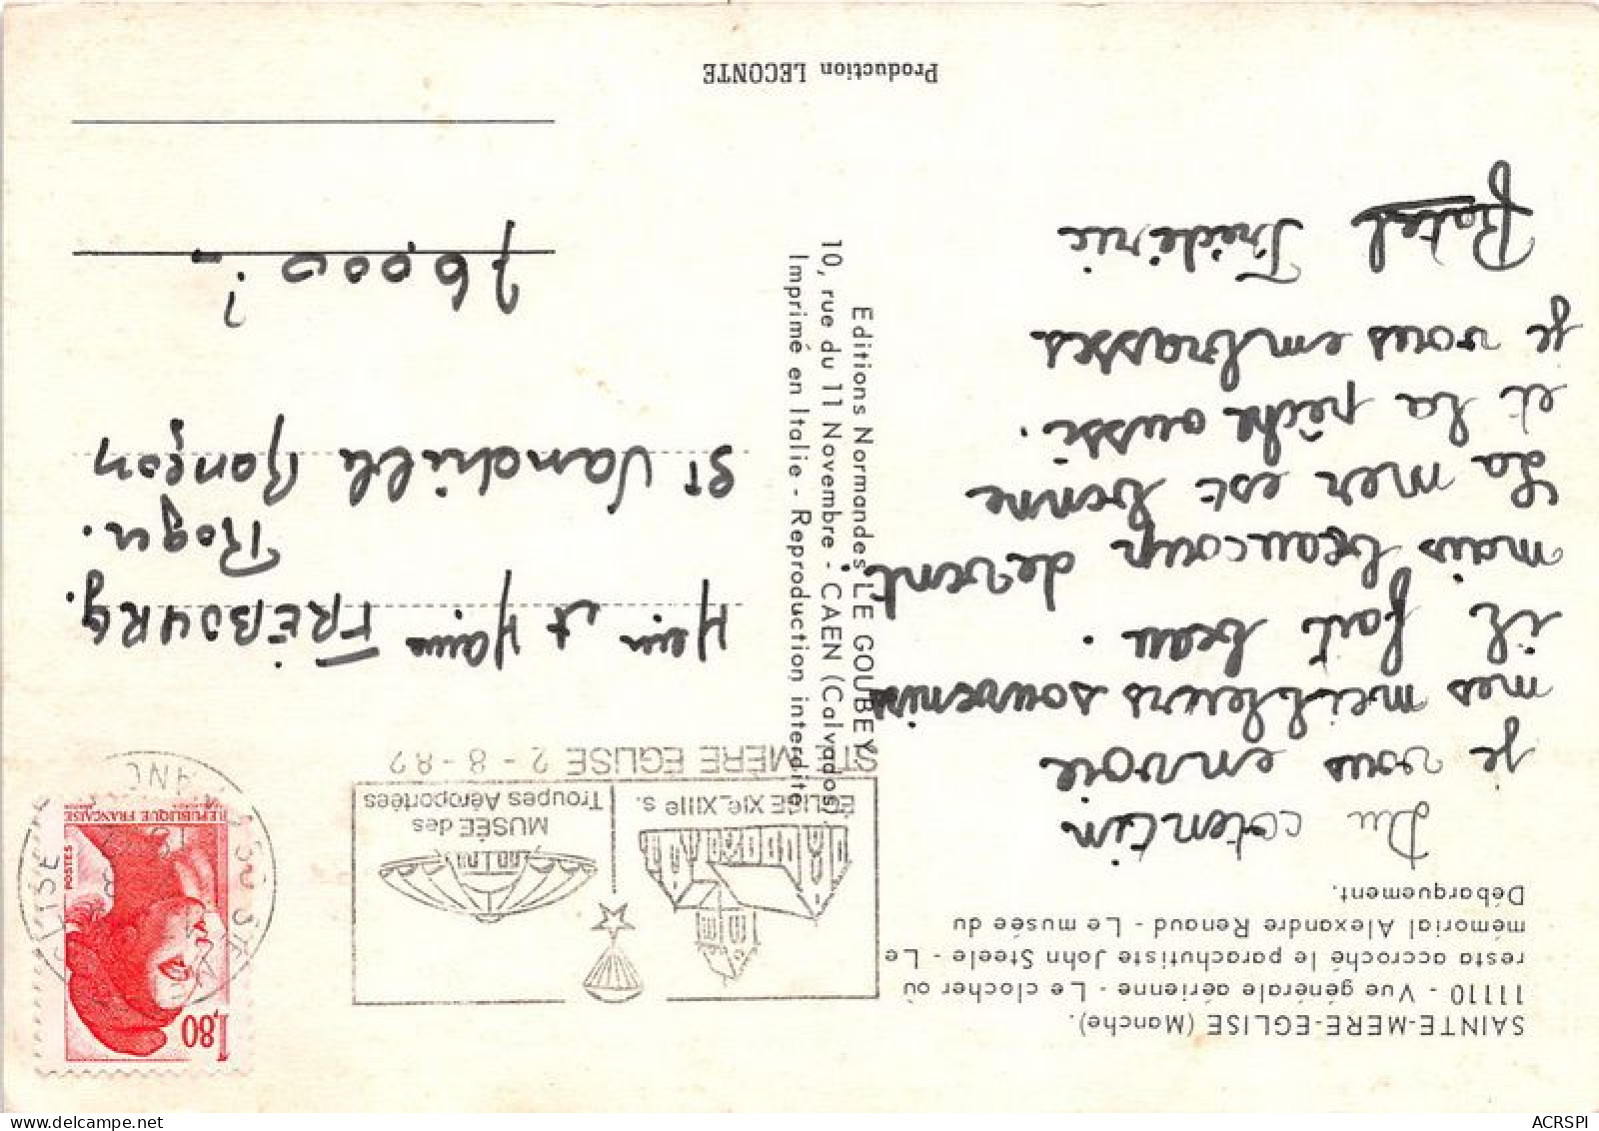 SAINTE-MERE-EGLISE (Manche).
11110 - Vue générale aérienne - Le clocher où
resta accroché le parachutiste John Steele - Le
mémorial Alexandre Renaud - Le musée du
Débarquement.
Du cotentin
je vous envoie
mes meilleurs souvenirs
il fait beau.
mais beaucoup de vent
La mer est bonne
et la pêche aussi.
je vous embrasses
Batel Frédéric
Editions Normandes LE GOUBEY
10, rue du 11 Novembre - CAEN (Calvados)
Imprimé en Italie - Reproduction interdite
Production LECONTE
1,80
POSTES
REPUBLIQUE FRANÇAISE
EGLISE XIe_XIIIe s.
MUSÉE des
Troupes Aéroportées
STE MÈRE EGLISE 2 - 8 - 82
et FRÉBOURG.
Roger.
St Vandrille Rançon
76000 ?
ACRSPI